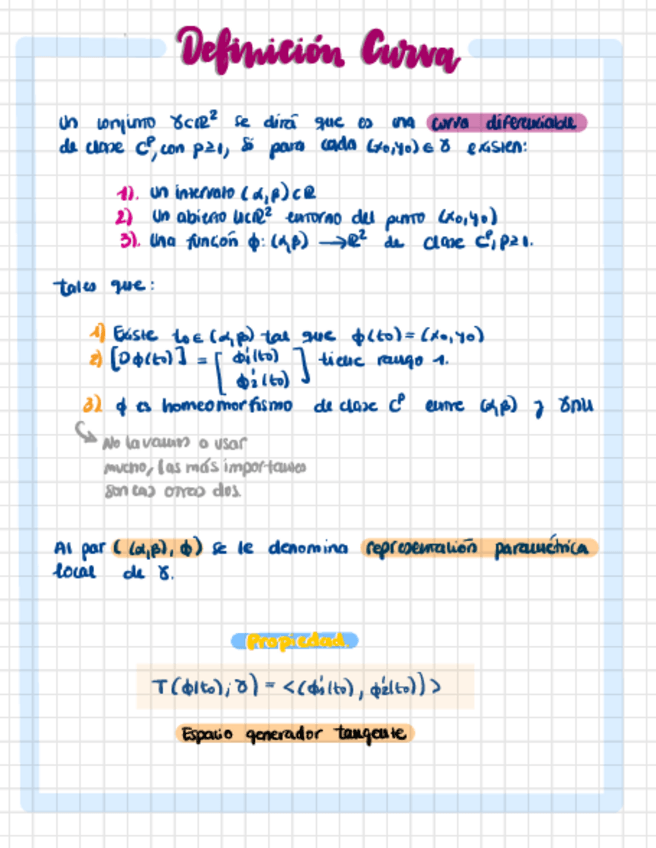 Definición Curva
Un conjunto γ⊂ℝ² se dirá que es una curva diferenciable
de clase Cᵖ, con p≥1, si para cada (x₀,y₀) ∈ γ existen:
1). Un intervalo (α,β)⊂ℝ
2) Un abierto U⊂ℝ² entorno del punto (x₀,y₀)
3). Una función ϕ: (α,β) → ℝ² de clase Cᵖ, p≥1.
tales que:
1) Existe t₀ ∈ (α,β) tal que ϕ(t₀) = (x₀,y₀)
2) [Dϕ(t₀)] = [ϕ₁'(t₀) ϕ₂'(t₀)] tiene rango 1.
3) ϕ es homeomorfismo de clase Cᵖ entre (α,β) y γ∩U
No la vamos a usar
mucho, las más importantes
son las otras dos.
Al par ((α,β), ϕ) se le denomina representación paramétrica
local de γ.
Propiedad
T(ϕ(t₀); γ) = <(ϕ₁'(t₀), ϕ₂'(t₀))>
Espacio generador tangente